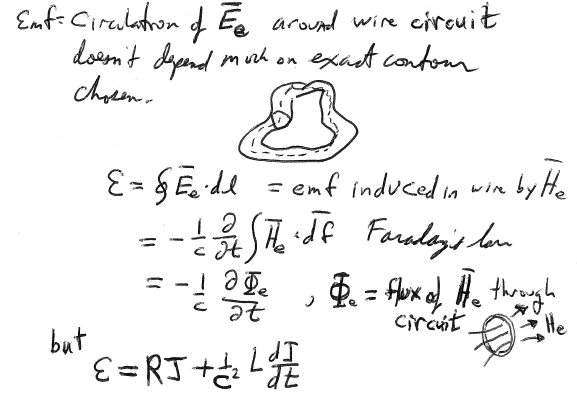 Emf = Circulation of E̅ₑ around wire circuit
doesn't depend much on exact contour
chosen.
ℰ = ∮ E̅ₑ·dl = emf induced in wire by H̅ₑ
= -1/c ∂/∂t ∫ H̅ₑ·df̅ Faraday's law
= -1/c ∂Φₑ/∂t , Φₑ = flux of H̅ₑ through
circuit
Hₑ
but
ℰ = RJ + 1/c² L dJ/dt